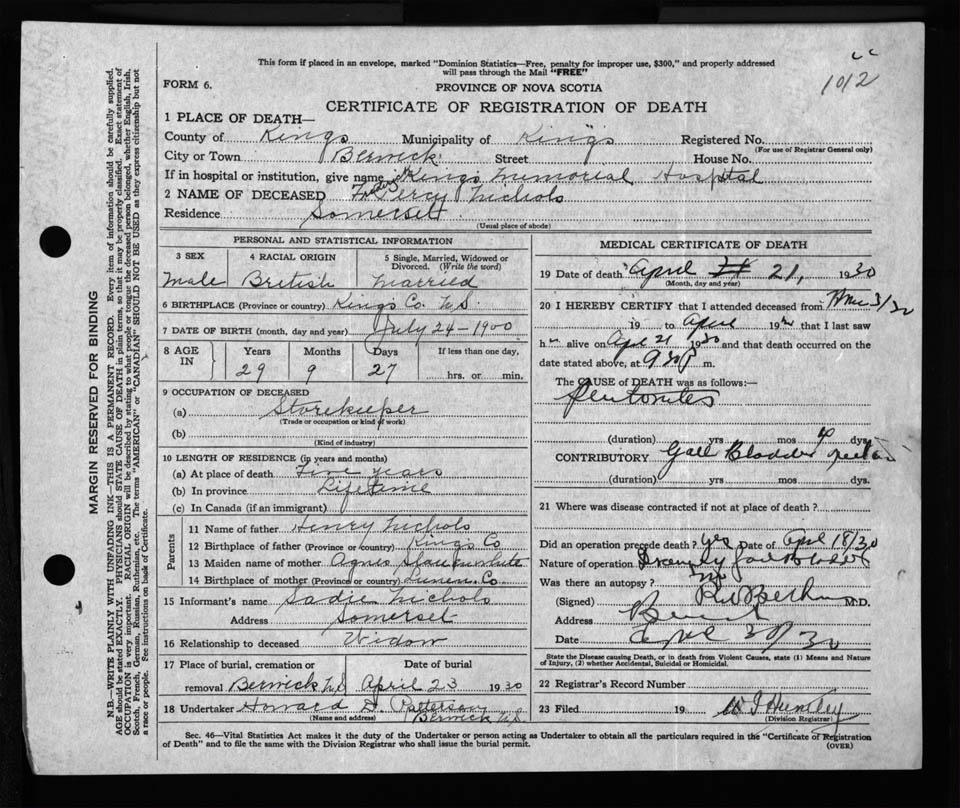 This form if placed in an envelope, marked "Dominion Statistics—Free, penalty for improper use, $300," and properly addressed
will pass through the Mail "FREE"
1012
FORM 6.
PROVINCE OF NOVA SCOTIA
CERTIFICATE OF REGISTRATION OF DEATH
1 PLACE OF DEATH—
County of Kings Municipality of Kings Registered No.
(For use of Registrar General only)
City or Town Berwick Street House No.
If in hospital or institution, give name Kings Memorial Hospital
2 NAME OF DECEASED Percy Nichols
Residence Somerset
(Usual place of abode)
PERSONAL AND STATISTICAL INFORMATION
3 SEX 4 RACIAL ORIGIN 5 Single, Married, Widowed or
Divorced. (Write the word)
Male British Married
6 BIRTHPLACE (Province or country) Kings Co. N.S.
7 DATE OF BIRTH (month, day and year) July 24 - 1900
8 AGE IN Years Months Days If less than one day,
29 9 27 hrs. or min.
9 OCCUPATION OF DECEASED
(a) Storekeeper
(Trade or occupation or kind of work)
(b)
(Kind of industry)
10 LENGTH OF RESIDENCE (in years and months)
(a) At place of death Five years
(b) In province Lifetime
(c) In Canada (if an immigrant)
Parents
11 Name of father Henry Nichols
12 Birthplace of father (Province or country) Kings Co
13 Maiden name of mother Agnes
14 Birthplace of mother (Province or country) Lunen. Co.
15 Informant's name Sadie Nichols
Address Somerset
16 Relationship to deceased Widow
17 Place of burial, cremation or Date of burial
removal Berwick N.S April 23 1930
18 Undertaker Howard D. Patterson
(Name and address) Berwick N.S
MEDICAL CERTIFICATE OF DEATH
19 Date of death April 21, 1930
(Month, day and year)
20 I HEREBY CERTIFY that I attended deceased from
19 to April 19 that I last saw
h alive on Apr 21 1930 and that death occurred on the
date stated above, at 9.30 P m.
The CAUSE OF DEATH was as follows:
Peritonites
(duration) yrs mos dys.
CONTRIBUTORY Gall Bladder
(duration) yrs. mos. dys.
21 Where was disease contracted if not at place of death?
Did an operation precede death? yes Date of April 18/30
Nature of operation
Was there an autopsy? no
(Signed) M.D.
Address
Date
State the Disease causing Death, or in death from Violent Causes, state (1) Means and Nature
of Injury, (2) whether Accidental, Suicidal or Homicidal.
22 Registrar's Record Number
23 Filed 19
(Division Registrar)
Sec. 46—Vital Statistics Act makes it the duty of the Undertaker or person acting as Undertaker to obtain all the particulars required in the "Certificate of Registration
of Death" and to file the same with the Division Registrar who shall issue the burial permit.
(OVER)
MARGIN RESERVED FOR BINDING
N.B.—WRITE PLAINLY WITH UNFADING INK—THIS IS A PERMANENT RECORD. Every item of information should be carefully supplied.
AGE should be stated EXACTLY. PHYSICIANS should STATE CAUSE OF DEATH in plain terms, so that it may be properly classified. Exact statement of
OCCUPATION is very important. RACIAL ORIGIN will be described by stating to what people or tongue the deceased person belonged, whether English, Irish,
Scotch, French, German, Russian, Ruthenian, etc. The terms "AMERICAN" or "CANADIAN" SHOULD NOT BE USED as they express citizenship but not
a race or people. See instructions on back of Certificate.